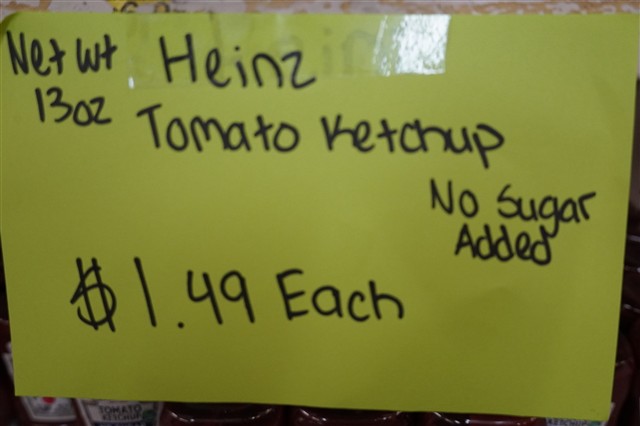 Net wt Heinz
13oz
Tomato Ketchup
No Sugar
Added
$1.49 Each
TOMATO
KETCHUP